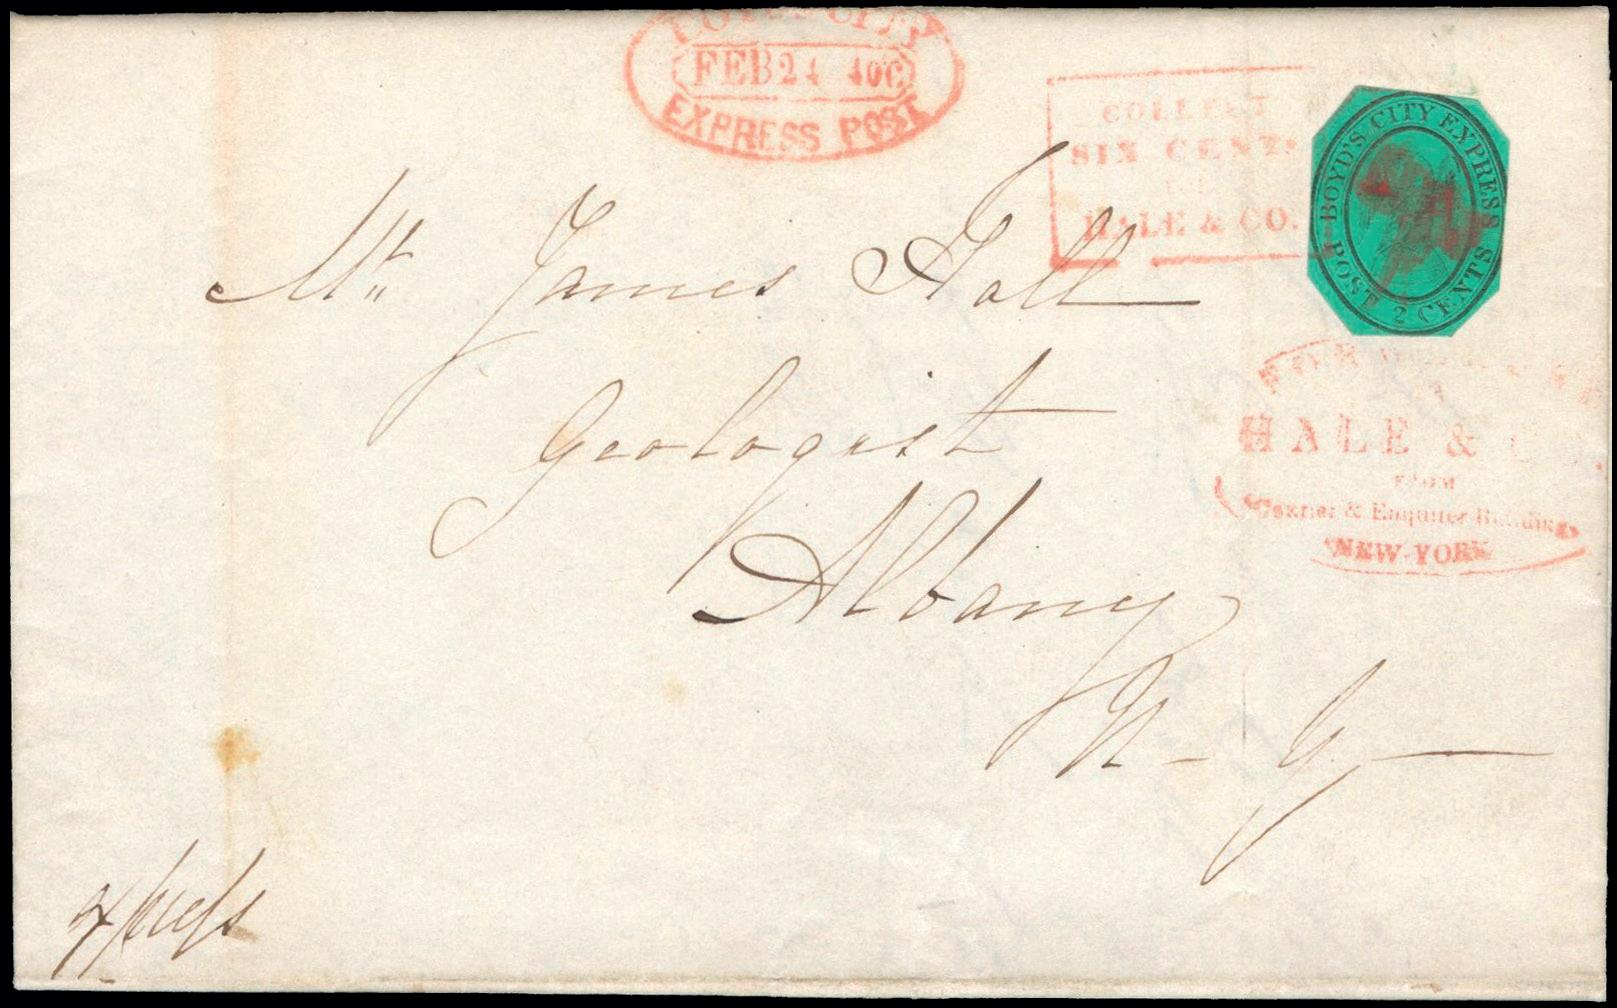 BOYD'S CITY
FEB 24 4OC
EXPRESS POST
COLLECT
SIX CENTS
HALE & CO.
BOYD'S CITY EXPRESS
POST 2 CENTS
Mr James Hall
Geologist
Albany
N-Y
HALE & CO.
FROM
Courier & Enquirer Building
NEW-YORK
express